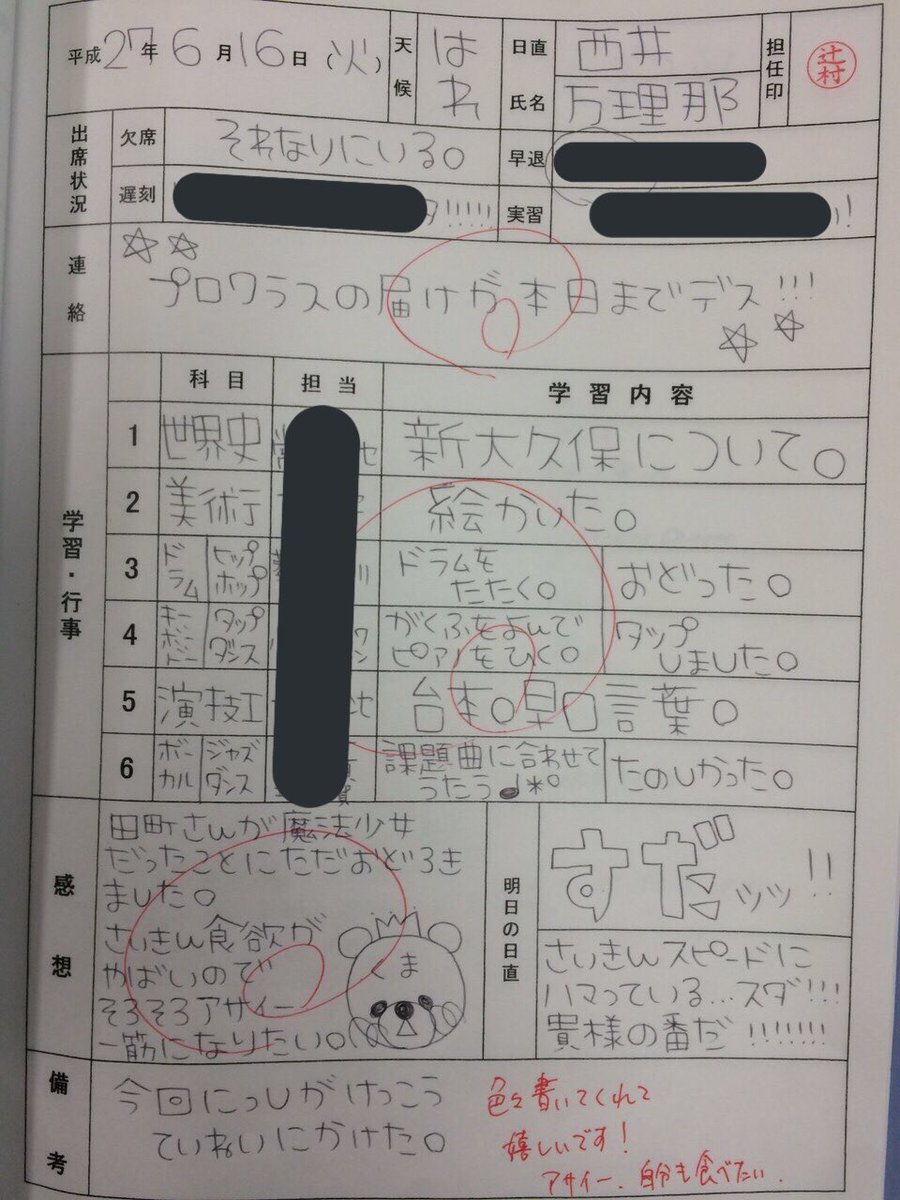 平成27年6月16日(火) 天候 はれ 日直氏名 西井万理那 担任印 辻村
出席状況
欠席 それなりにいる。 早退
遅刻 !!!!! 実習 !
連絡
プロワラスの届けが本日までデス!!!
科目 担当 学習内容
学習・行事
1 世界史 新大久保について。
2 美術 絵かいた。
3 ドラム ヒップホップ ドラムをたたく。 おどった。
4 キーボード タップダンス がくふをよんでピアノをひく。 タップしました。
5 演技 台本。早口言葉。
6 ボーカル ジャズダンス 課題曲に合わせてうたう♩*° たのしかった。
感想
田町さんが魔法少女
だったことにただおどろき
ました。
さいきん食欲が
やばいので
そろそろアサイー
一筋になりたい。
くま
明日の日直
すだッッ!!
さいきんスピードに
ハマっている…スダ!!!
貴様の番だ!!!!!!!
備考
今回にっしがけっこう
ていねいにかけた。
色々書いてくれて
嬉しいです!
アサイー、自分も食べたい.